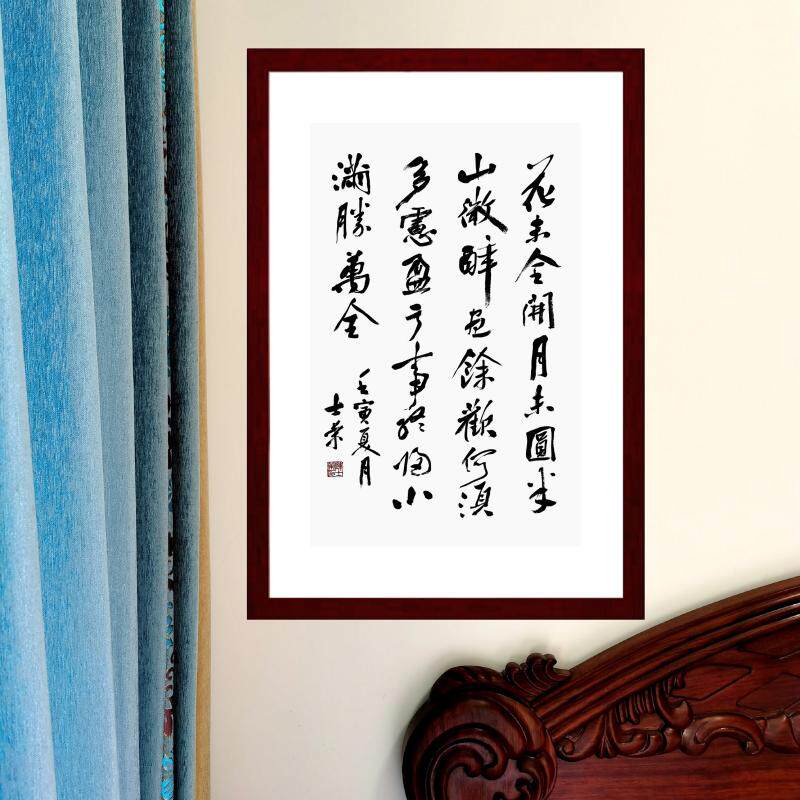 花未全開月未圓半
山微醉尽餘歡何須
多慮盈亏事終歸小
滿勝萬全
壬寅夏月
士荣